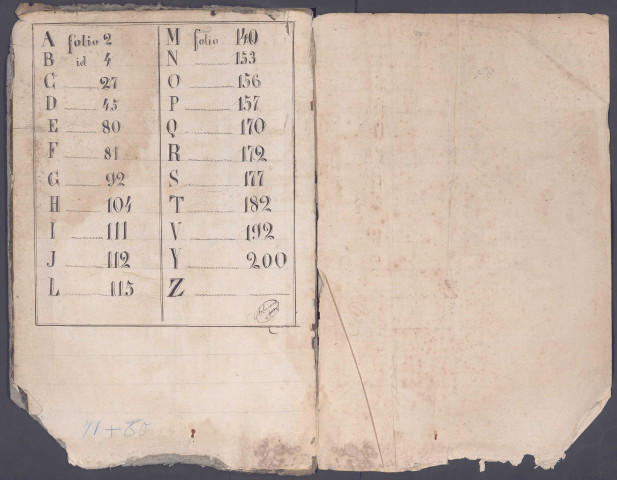 A folio 2
B id 4
C 27
D 45
E 80
F 81
G 92
H 104
I 111
J 112
L 115
M folio 140
N 153
O 156
P 157
Q 170
R 172
S 177
T 182
V 192
Y 200
Z
71+80